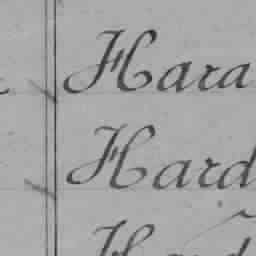 Hara
Hard